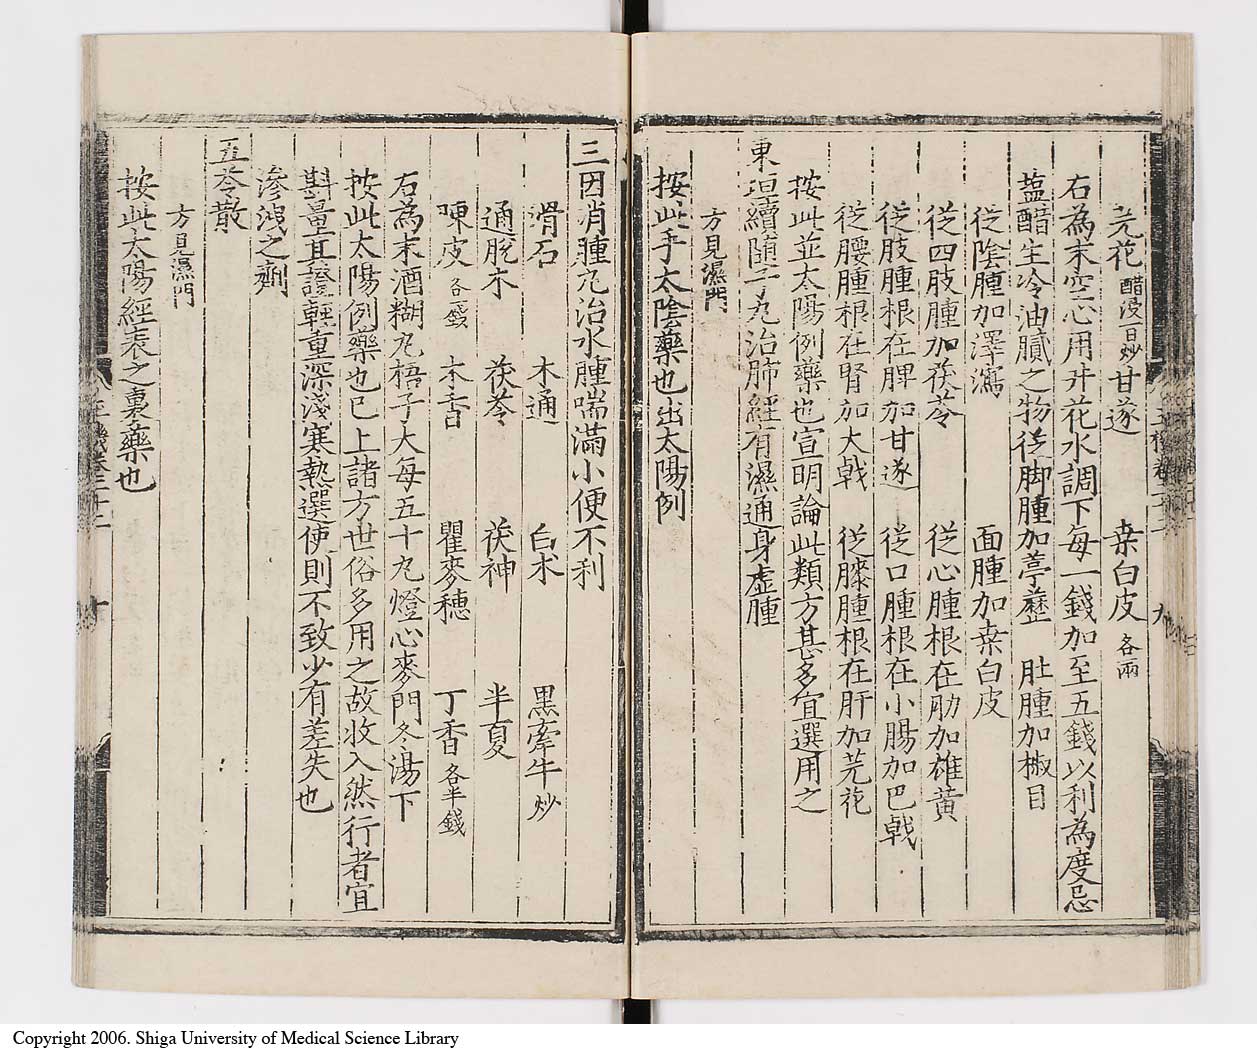 芫花醋浸一日炒 甘遂 桒白皮各一兩
右為末空心用井花水調下每一錢加至五錢以利為度忌
塩醋生冷油膩之物從脚腫加葶藶 肚腫加椒目
從陰腫加澤瀉 面腫加桒白皮
從四肢腫加茯苓 從心腫根在肋加雄黃
從肢腫根在脾加甘遂 從口腫根在小腸加巴戟
從腰腫根在腎加大戟 從膝腫根在肝加芫花
按此並太陽例藥也宣明論此類方甚多宜選用之
東垣續隨子丸治肺經有濕通身虛腫
方見濕門
按此手太陰藥也出太陽例
三因消腫丸治水腫喘滿小便不利
滑石 木通 白朮 黑牽牛炒
通脫木 茯苓 茯神 半夏
陳皮各一錢 木香 瞿麥穗 丁香各半錢
右為末酒糊丸梧子大每五十丸燈心麥門冬湯下
按此太陽例藥也已上諸方世俗多用之故收入然行者宜
斟量其證輕重深淺寒熱選使則不致少有差失也
滲洩之劑
五苓散
方見濕門
按此太陽經表之裏藥也
Copyright 2006. Shiga University of Medical Science Library